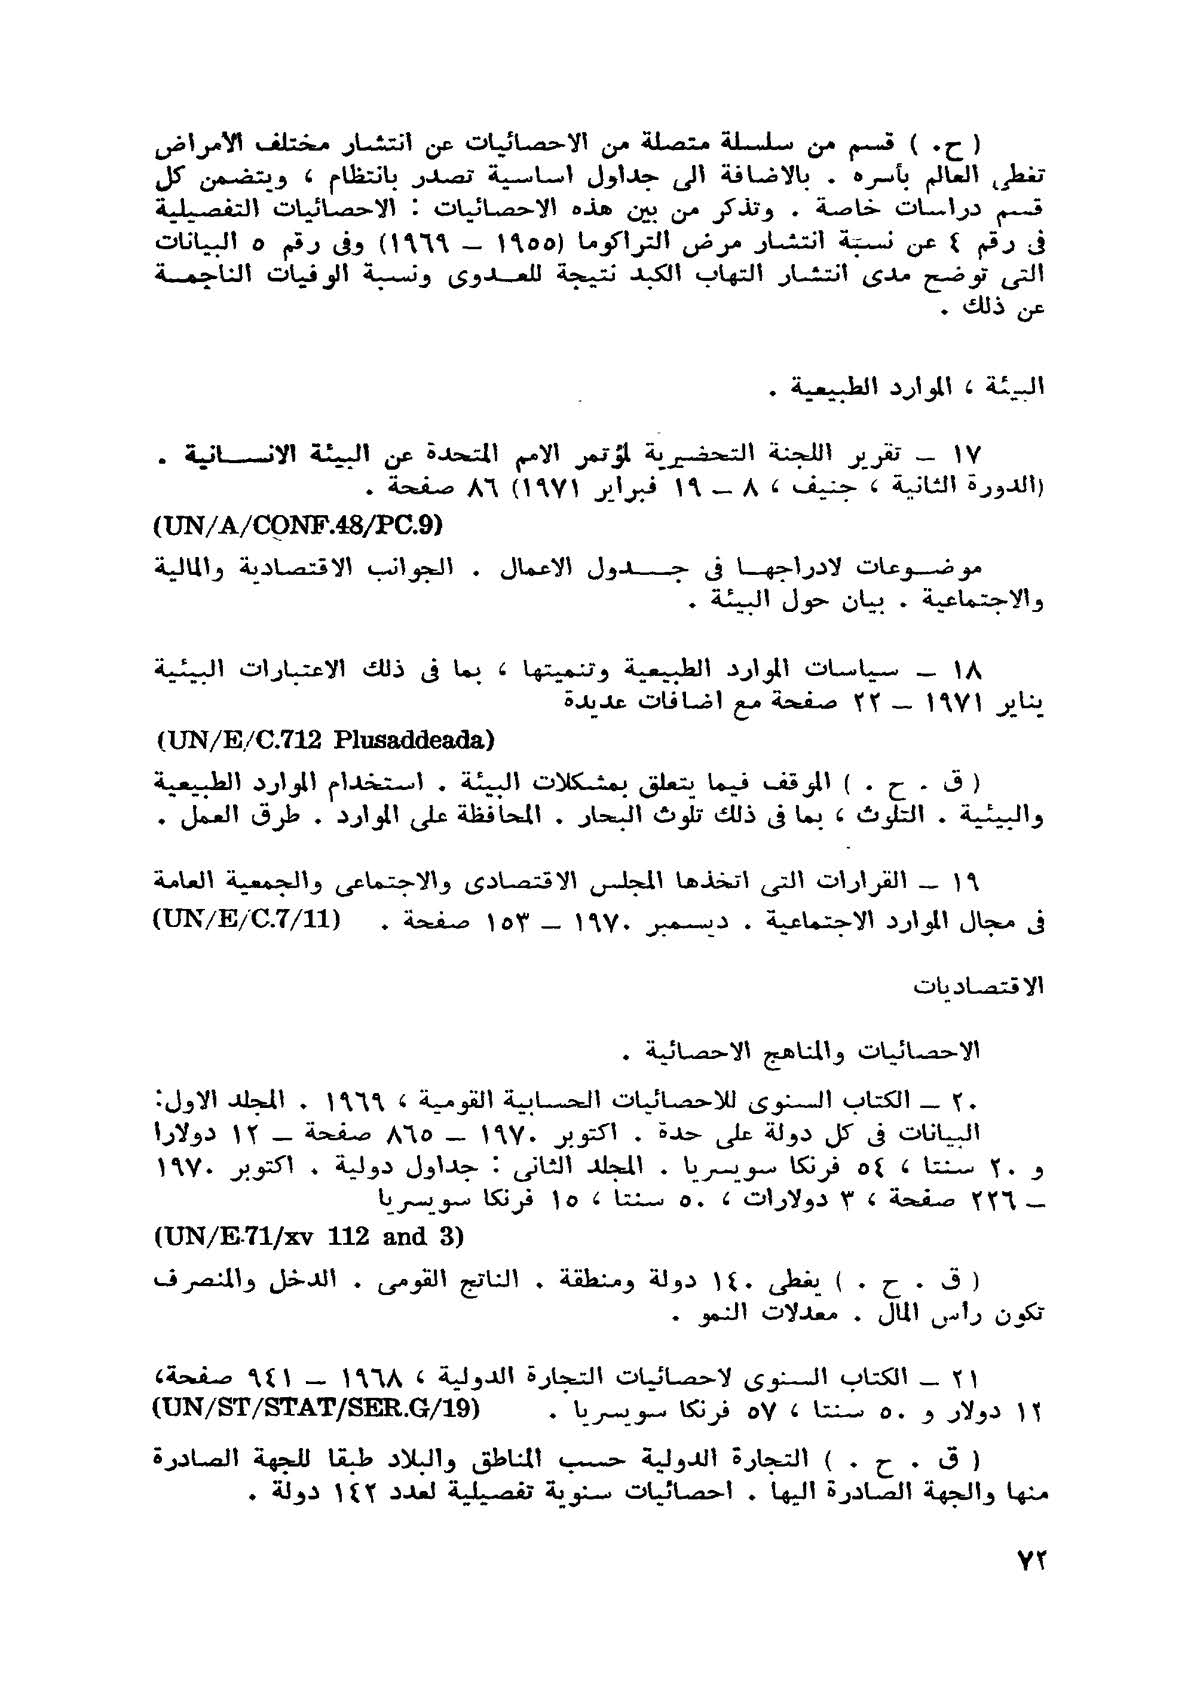 ( ح. ) قسم من سلسلة متصلة من الاحصائيات عن انتشار مختلف الأمراض
تغطى العالم بأسره . بالاضافة الى جداول اساسية تصدر بانتظام ، ويتضمن كل
قسم دراسات خاصة . وتذكر من بين هذه الاحصائيات : الاحصائيات التفصيلية
فى رقم ٤ عن نسبة انتشار مرض التراكوما (١٩٥٥ – ١٩٦٩) وفى رقم ٥ البيانات
التى توضح مدى انتشار التهاب الكبد نتيجة للعدوى ونسبة الوفيات الناجمة
عن ذلك .
البيئة ، الموارد الطبيعية .
١٧ – تقرير اللجنة التحضيرية لمؤتمر الامم المتحدة عن البيئة الانسانية .
(الدورة الثانية ، جنيف ، ٨ – ١٩ فبراير ١٩٧١) ٨٦ صفحة .
(UN/A/CONF.48/PC.9)
موضوعات لادراجها فى جدول الاعمال . الجوانب الاقتصادية والمالية
والاجتماعية . بيان حول البيئة .
١٨ – سياسات الموارد الطبيعية وتنميتها ، بما فى ذلك الاعتبارات البيئية
يناير ١٩٧١ – ٢٢ صفحة مع اضافات عديدة
(UN/E/C.712 Plusaddeada)
( ق . ح . ) الموقف فيما يتعلق بمشكلات البيئة . استخدام الموارد الطبيعية
والبيئية . التلوث ، بما فى ذلك تلوث البحار . المحافظة على الموارد . طرق العمل .
١٩ – القرارات التى اتخذها المجلس الاقتصادى والاجتماعى والجمعية العامة
فى مجال الموارد الاجتماعية . ديسمبر ١٩٧٠ – ١٥٣ صفحة . (UN/E/C.7/11)
الاقتصاديات
الاحصائيات والمناهج الاحصائية .
٢٠ – الكتاب السنوى للاحصائيات الحسابية القومية ، ١٩٦٩ . المجلد الاول:
البيانات فى كل دولة على حدة . اكتوبر ١٩٧٠ – ٨٦٥ صفحة – ١٢ دولارا
و ٢٠ سنتا ، ٥٤ فرنكا سويسريا . المجلد الثانى : جداول دولية . اكتوبر ١٩٧٠
– ٢٢٦ صفحة ، ٣ دولارات ، ٥٠ سنتا ، ١٥ فرنكا سويسريا
(UN/E.71/xv 112 and 3)
( ق . ح . ) يغطى ١٤٠ دولة ومنطقة . الناتج القومى . الدخل والمنصرف
تكون رأس المال . معدلات النمو .
٢١ – الكتاب السنوى لاحصائيات التجارة الدولية ، ١٩٦٨ – ٩٤١ صفحة،
١٢ دولار و ٥٠ سنتا ، ٥٧ فرنكا سويسريا . (UN/ST/STAT/SER.G/19)
( ق . ح . ) التجارة الدولية حسب المناطق والبلاد طبقا للجهة الصادرة
منها والجهة الصادرة اليها . احصائيات سنوية تفصيلية لعدد ١٤٢ دولة .
٧٢